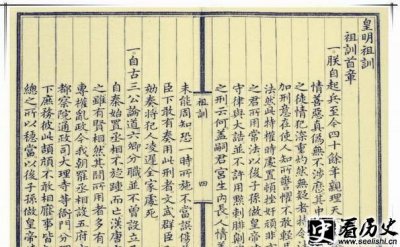 皇明祖訓
祖訓首章
一朕自起兵至今四十餘年親理天
情善惡真偽無不涉歷其中
之徒情犯深重灼然無疑者特令法
加刑意在使人知所警懼不敢輕
法然此特權時處置頓挫奸頑非
之君所用常法以後子孫做皇帝
守律與大誥並不許用黥刺剕
之刑云何蓋嗣君宮生內長人情善
祖訓 四
未能周知恐一時所施不當誤傷
臣下敢有奏用此刑者文武群臣
劾奏將犯人凌遲全家處死
一自古三公論道六卿分職並不曾設立
自秦始置丞相不旋踵而亡漢唐
之雖有賢相然其間所用者多有
專權亂政今我朝罷丞相設五府
都察院通政司大理寺等衙門分
下庶務彼此頡頏不敢相壓事皆
總之所以穩當以後子孫做皇帝
看历史
www.seelishi.com